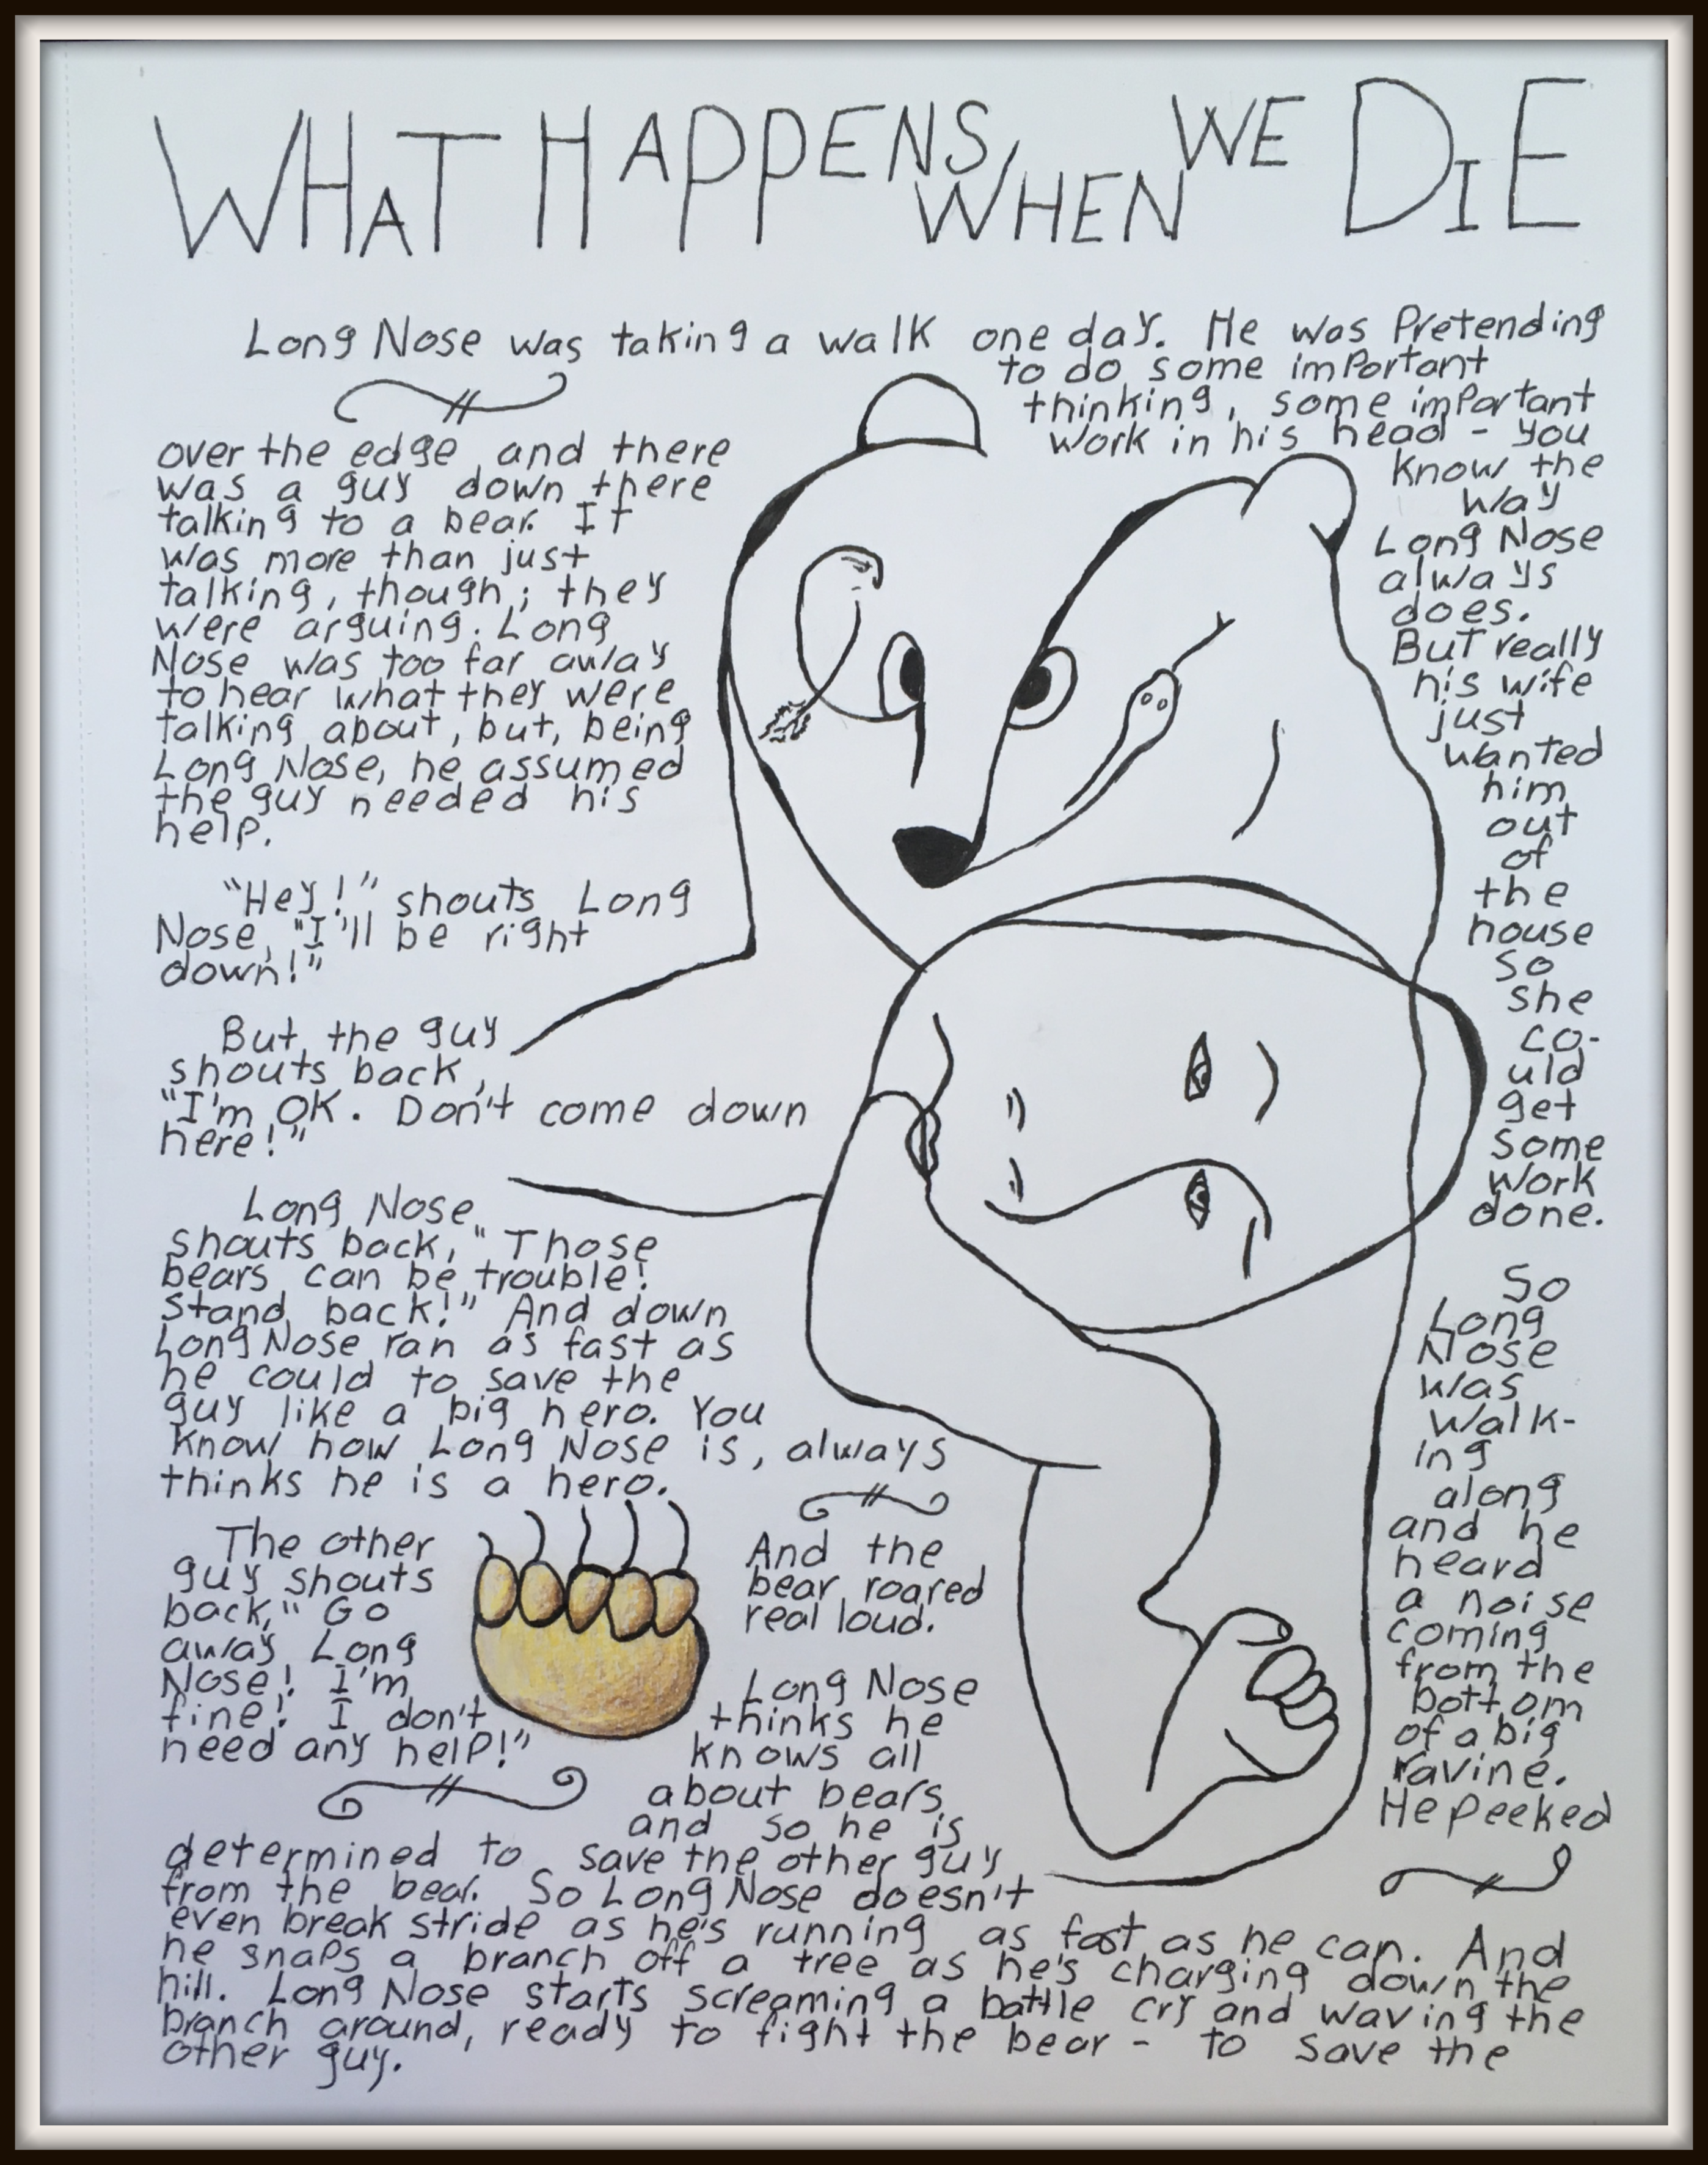 WHAT HAPPENS WHEN WE DIE
Long Nose was taking a walk one day. He was Pretending
to do some important
thinking, some important
work in his head - you
know the
way
Long Nose
always
does.
But really
his wife
just
wanted
him
out
of
the
house
so
she
co-
uld
get
some
work
done.
So
Long
Nose
was
walk-
ing
along
and he
heard
a noise
coming
from the
bottom
of a big
ravine.
He peeked
over the edge and there
was a guy down there
talking to a bear. It
was more than just
talking, though; they
were arguing. Long
Nose was too far away
to hear what they were
talking about, but, being
Long Nose, he assumed
the guy needed his
help.
"Hey!" shouts Long
Nose, "I'll be right
down!"
But, the guy
shouts back,
"I'm OK. Don't come down
here!"
Long Nose
shouts back, "Those
bears can be trouble!
Stand back!" And down
Long Nose ran as fast as
he could to save the
guy like a big hero. You
know how Long Nose is, always
thinks he is a hero.
The other
guy shouts
back, "Go
away Long
Nose! I'm
fine! I don't
need any help!"
And the
bear roared
real loud.
Long Nose
thinks he
knows all
about bears
and so he is
determined to save the other guy
from the bear. So Long Nose doesn't
even break stride as he's running as fast as he can. And
he snaps a branch off a tree as he's charging down the
hill. Long Nose starts screaming a battle cry and waving the
branch around, ready to fight the bear - to save the
other guy.